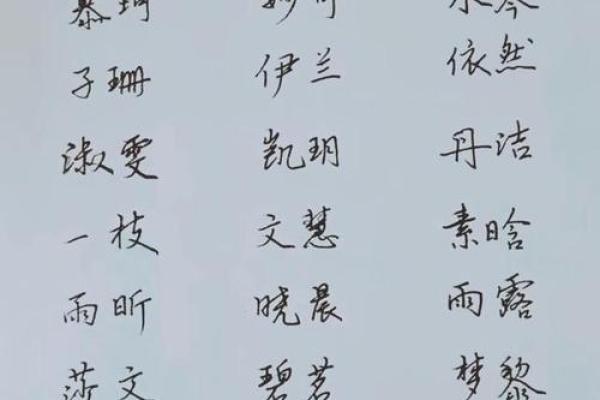 慕珂
子珊 伊兰 依然
淑雯 凯玥 丹洁
一枝 文慧 素晗
雨昕 晓晨 雨露
莎文 碧茗 梦黎